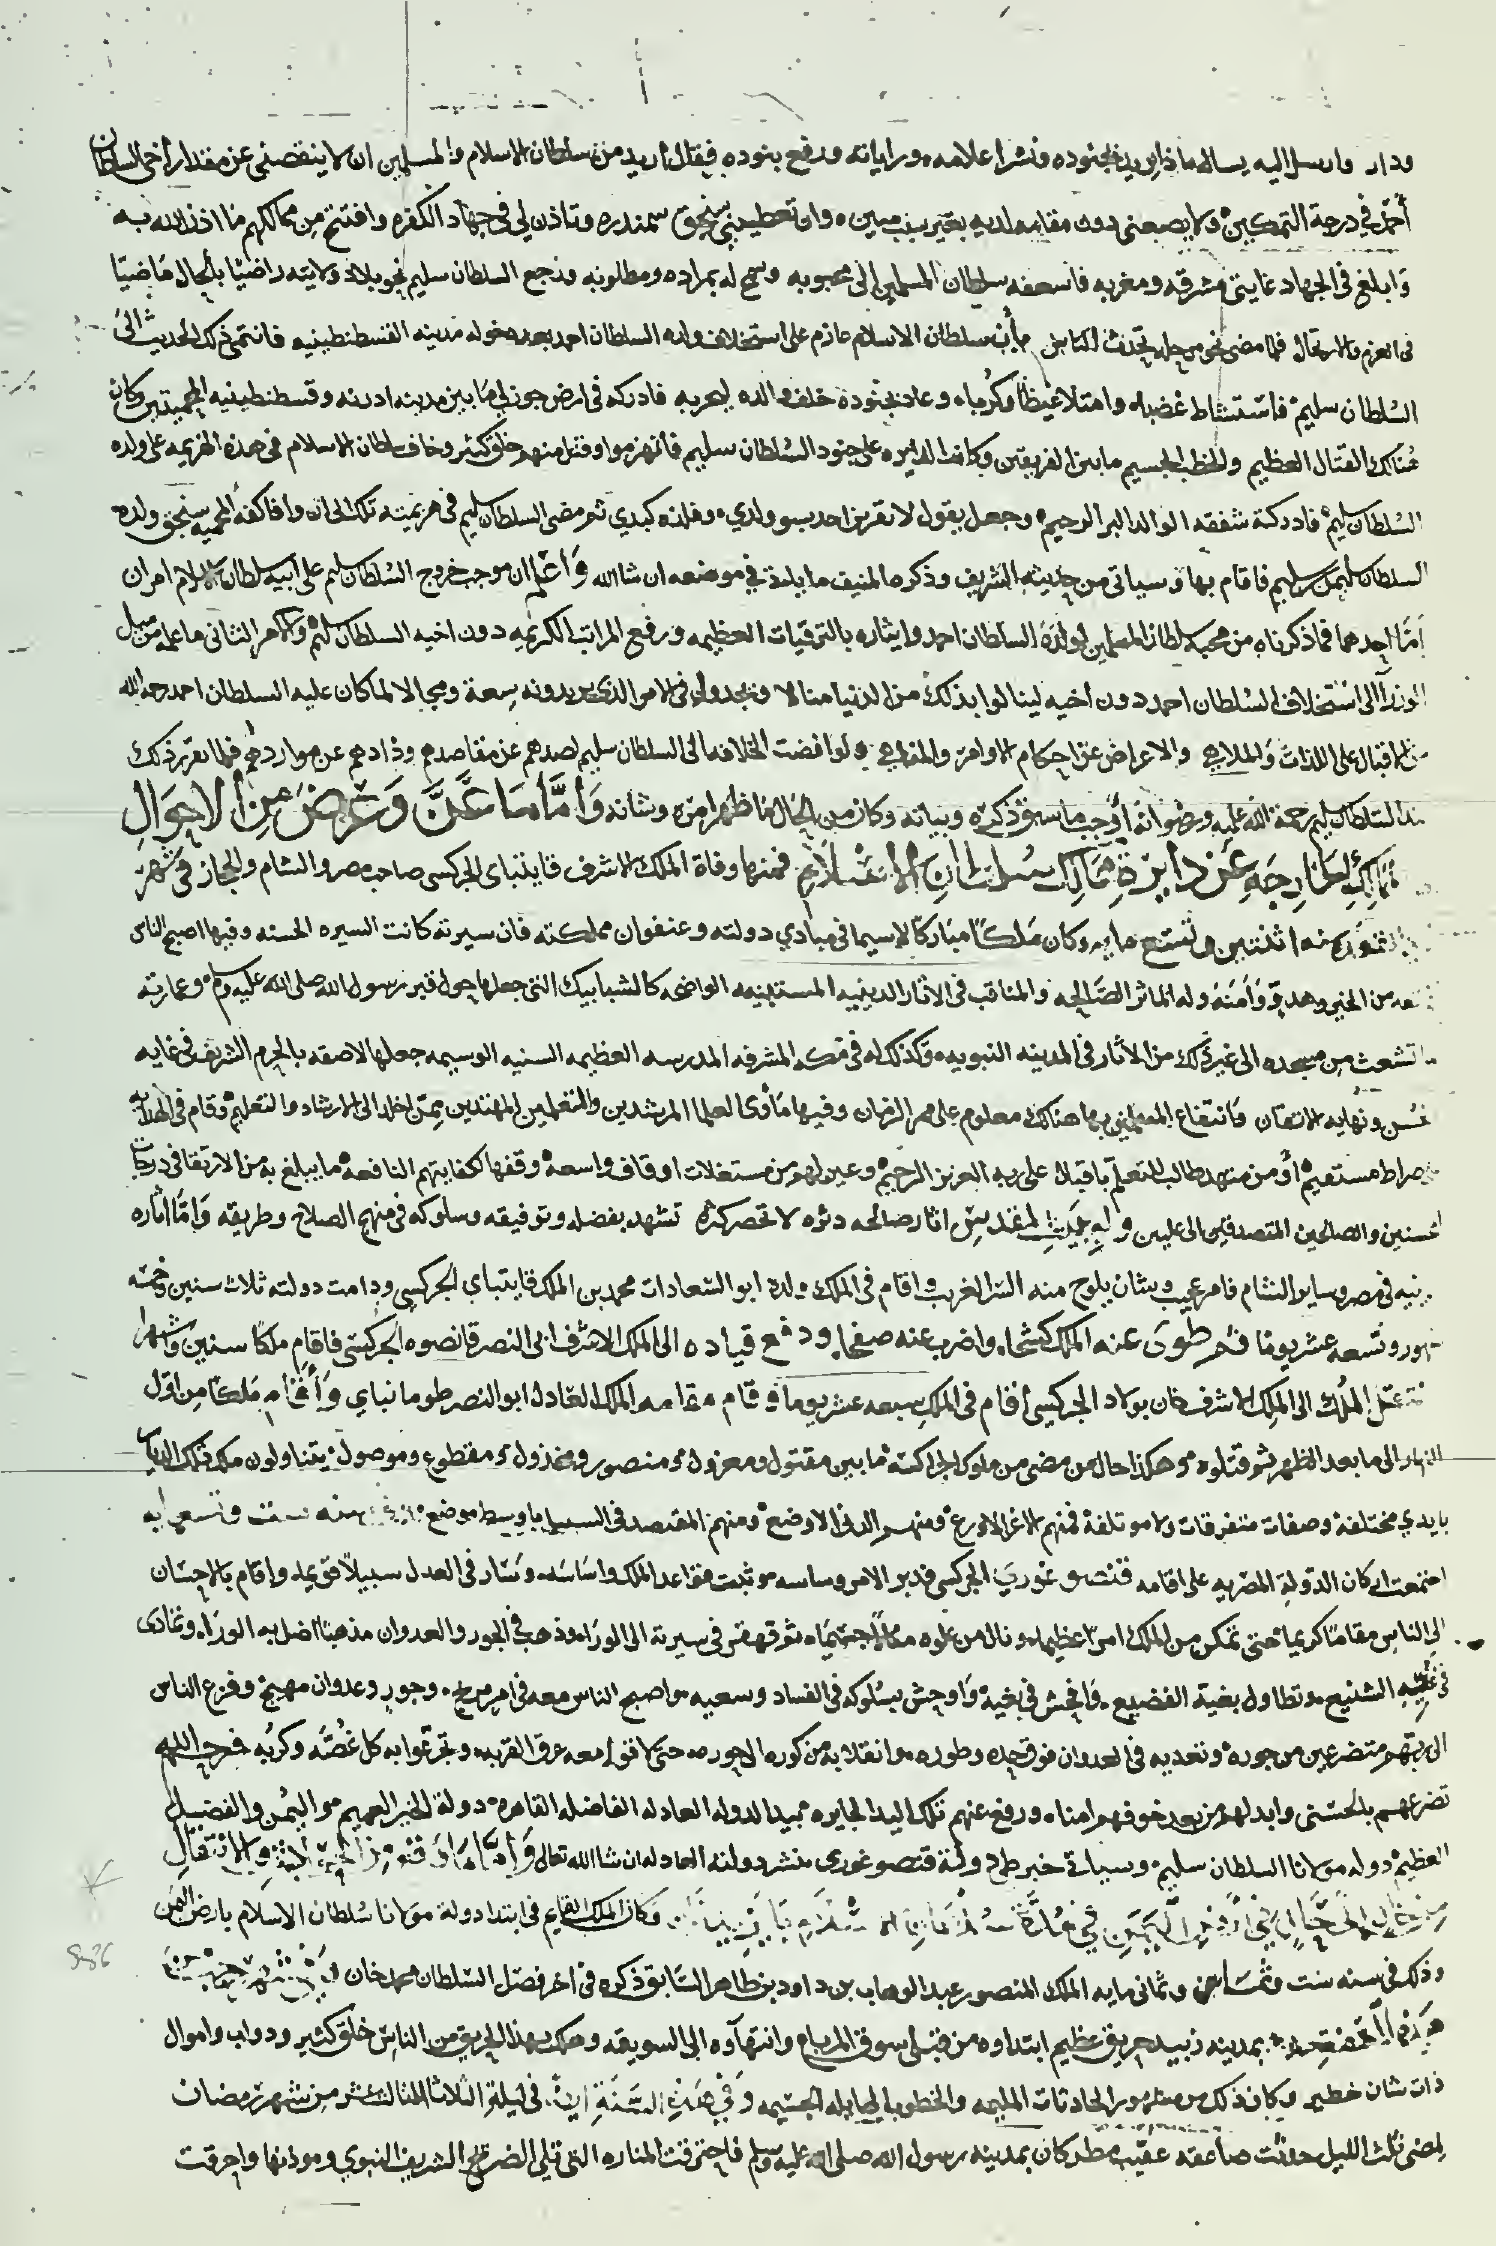 ودار وارسل اليه يساله ماذا يريد بجنوده ونشر اعلامه وراياته ودفع بنوده فقال اريد من سلطان الاسلام والمسلمين ان لا ينقصني عن مقدار اخي السلطان
احمد في درجة التمكين ولا يضعني دون مقامه لديه بغير سبب مبين وان تعطيني سنجق سمندره وتاذن لي في جهاد الكفره وافتتح من ممالكهم ما اذن الله به
وابلغ في الجهاد غايتي مشرقه ومغربه فاسعفه سلطان المسلمين الى محبوبه وسمح له بمراده ومطلوبه ورجع السلطان سليم نحو بلاد ولايته راضيا بالحال ماضيا
في العزم والارتحال فلما مضى نحو مرحله تحدث الناس بأن سلطان الاسلام عازم على استخلاف ولده السلطان احمد بعد دخوله مدينه القسطنطينيه فانتمى ذلك الحديث الى
السلطان سليم فاستشاط غضبا وامتلا غيظا وكربا وعاد بجنوده خلف والده لحربه فادركه في ارض جورلي ما بين مدينه ادرنه وقسطنطينيه المحميتين وكان
هنالك القتال العظيم والخطب الجسيم ما بين الفريقين وكانت الدايره على جنود السلطان سليم فانهزموا وقتل منهم خلق كثير وخاف سلطان الاسلام في هذه الهزيمه على ولده
السلطان سليم فادركته شفقه الوالد البر الرحيم وجعل يقول لا تقربن احد بسو ولدي وفلذه كبدي ثم مضى السلطان سليم في هزيمته تلك الى ان وافا كفه المحميه سنجق ولده
السلطان سليمن بن سليم فاقام بها وسياتي من حديثه الشريف وذكره المنيف ما يلذ في موضعه ان شا الله واعلم ان موجب خروج السلطان سليم على ابيه سلطان الاسلام امران
اما احدهما فما ذكرناه من محبه سلطان المسلمين لولده السلطان احمد وايثاره بالترقيات العظيمه ورفع المراتب الكريمه دون اخيه السلطان سليم والامر الثاني ما علمه من ميل
الوزرآ الى استخلاف السلطان احمد دون اخيه لينالوا بذلك من الدنيا منالا ويجدوا في الامر الذي يريدونه سعة ومجالا لما كان عليه السلطان احمد رحمه الله
من الاقبال على اللذات والملاهي والاعراض عن احكام الاوامر والنواهي ولو افضت الخلافه الى السلطان سليم لصدهم عن مقاصدهم وذادهم عن مواردهم فلما تقرر ذلك
عند السلطان سليم رحمة الله عليه ورضوانه أوجب ما سبق ذكره وبيانه وكان من الحال ما ظهر امره وشانه وأما ما عن وعرض من الاحوال
الخارجه عن دايرة ممالك سلطان الاسلام فمنها وفاة الملك الاشرف قايتباي الجركسي صاحب مصر والشام والحجاز في شهر
سنه اثنتين وتسع مايه وكان ملكا مباركا لاسيما في مبادي دولته وعنفوان مملكته فان سيرته كانت السيره الحسنه وفيها اصبح الناس
من الخير وهدو وأمنه وله الماثر الصالحه والمناقب في الاثار الدينيه المستبينه الواضحه كالشبابيك التي جعلها حول قبر رسول الله صلى الله عليه وسلم وعمارته
ما تشعث من مسجده الى غير ذلك من الاثار في المدينه النبويه وكذلك له في مكه المشرفه المدرسه العظيمه السنيه الوسيمه جعلها لاصقه بالحرم الشريف في غايه
الحسن ونهايه الاتقان وانتفاع المسلمين بها هنالك معلوم على ممر الزمان وفيها مأوى العلما المرشدين والمتعلمين المهتدين ممن اخلد الى الارشاد والتعليم وقام في الهدايه
صراط مستقيم أو من منهم طالب للتعلم باقبال على ربه العزيز الرحيم وعين لهم من مستغلات اوقاف واسعه وقفها لكفايتهم النافعه ما يبلغ به من الارتقا في درجات
المحسنين والصالحين المتصدقين الى عليين وله ببيت المقدس اثار صالحه دثره لا تحصر كثره تشهد بفضله وتوفيقه وسلوكه في منهج الصلاح وطريقه واما آثاره
في مصر وساير الشام فامر عجيب وشان يلوح منه السر الغريب واقام في الملك ولده ابو السعادات محمد بن الملك قايتباي الجركسي ودامت دولته ثلاث سنين وخمسه
شهور وتسعه عشر يوما ثم طوى عنه الملك كشحا واضرب عنه صفحا ودفع قياده الى الملك الاشرف ابي النصر قانصوه الجركسي فاقام ملكا سنين واشهرا
انتقل الملك الى الملك الاشرف جان بولاد الجركسي أقام في الملك سبعه عشر يوما وقام مقامه الملك العادل ابو النصر طومانباي وأقام ملكا من اول
النهار الى ما بعد الظهر ثم قتلوه وهكذا حال من مضى من ملوك الجراكسة ما بين مقتول ومعزول ومنصور ومخذول ومقطوع وموصول يتناولون ملك تلك الديار
بايدي مختلفة وصفات متفرقات ولا موتلفة فمنهم الاغر الاورع ومنهم الدني الاوضع ومنهم المقتصد في السبيل باوسط موضع سنه ست وتسعمايه
اجتمعت اركان الدولة المصريه على اقامه قنصو غوري الجركسي فدبر الامر وساسه وثبت قواعد الملك واساسه وسار في العدل سبيلا قويما واقام بالاحسان
الى الناس مقاما كريما حتى تمكن من الملك امرا عظيما ونال من علوه مقاما جسيما ثم تقهقر في سيرته الى الورا وذهب في الجور والعدوان مذهبا اضل به الورا وتمادى
في غيه الشنيع وتطاول بغيه الفضيع وافحش في بغيه وأوحش بسلوكه في الفساد وسعيه واصبح الناس معه في امر مريج وجور وعدوان مهيج وفزع الناس
الى ربهم متضرعين من جوره وتعديه في العدوان فوق حده وطوره وانقلابه من كوره الى حوره حتى لاقوا معه عرق القربه وتجرعوا به كل غصه وكربه فرحم الله
تضرعهم بالحسنى وابدلهم من بعد خوفهم امنا ورفع عنهم تلك اليد الجايره بيد الدوله العادله الفاضله القاهره دولة الخير العميم واليمن والفضل
العظيم دوله مولانا السلطان سليم وسياتي خبر طي دولة قنصو غوري بنشر دولته العادله ان شا الله تعالى وأما ما وقع من الحوادث والانتقال
من حال الى حال في أرض اليمن في مدة سلطان الاسلام بايزيد خان وكان الملك القايم في ابتدا دولة مولانا سلطان الاسلام بارض اليمن
وذلك في سنه ست وثمانين وثماني مايه الملك المنصور عبد الوهاب بن داود بن طاهر السابق ذكره في اخر فصل السلطان محمد خان
بمدينه زبيد حريق عظيم ابتداوه من قبلي سوق المرباع وانتهآوه الى السويقه وهلك بهذا الحريق من الناس خلق كثير ودواب واموال
ذات شان خطير وكان ذلك من مشهور الحادثات المليمه والخطوب الهايله الجسيمه وفي هذه السنة ايضا في ليلة الثلاثا الثالث عشر من شهر رمضان
لمضي ثلث الليل حدثت صاعقه عقيب مطر كان بمدينه رسول الله صلى الله عليه وسلم فاحترقت المناره التي تلي الضريح الشريف النبوي وموذنها واحرقت